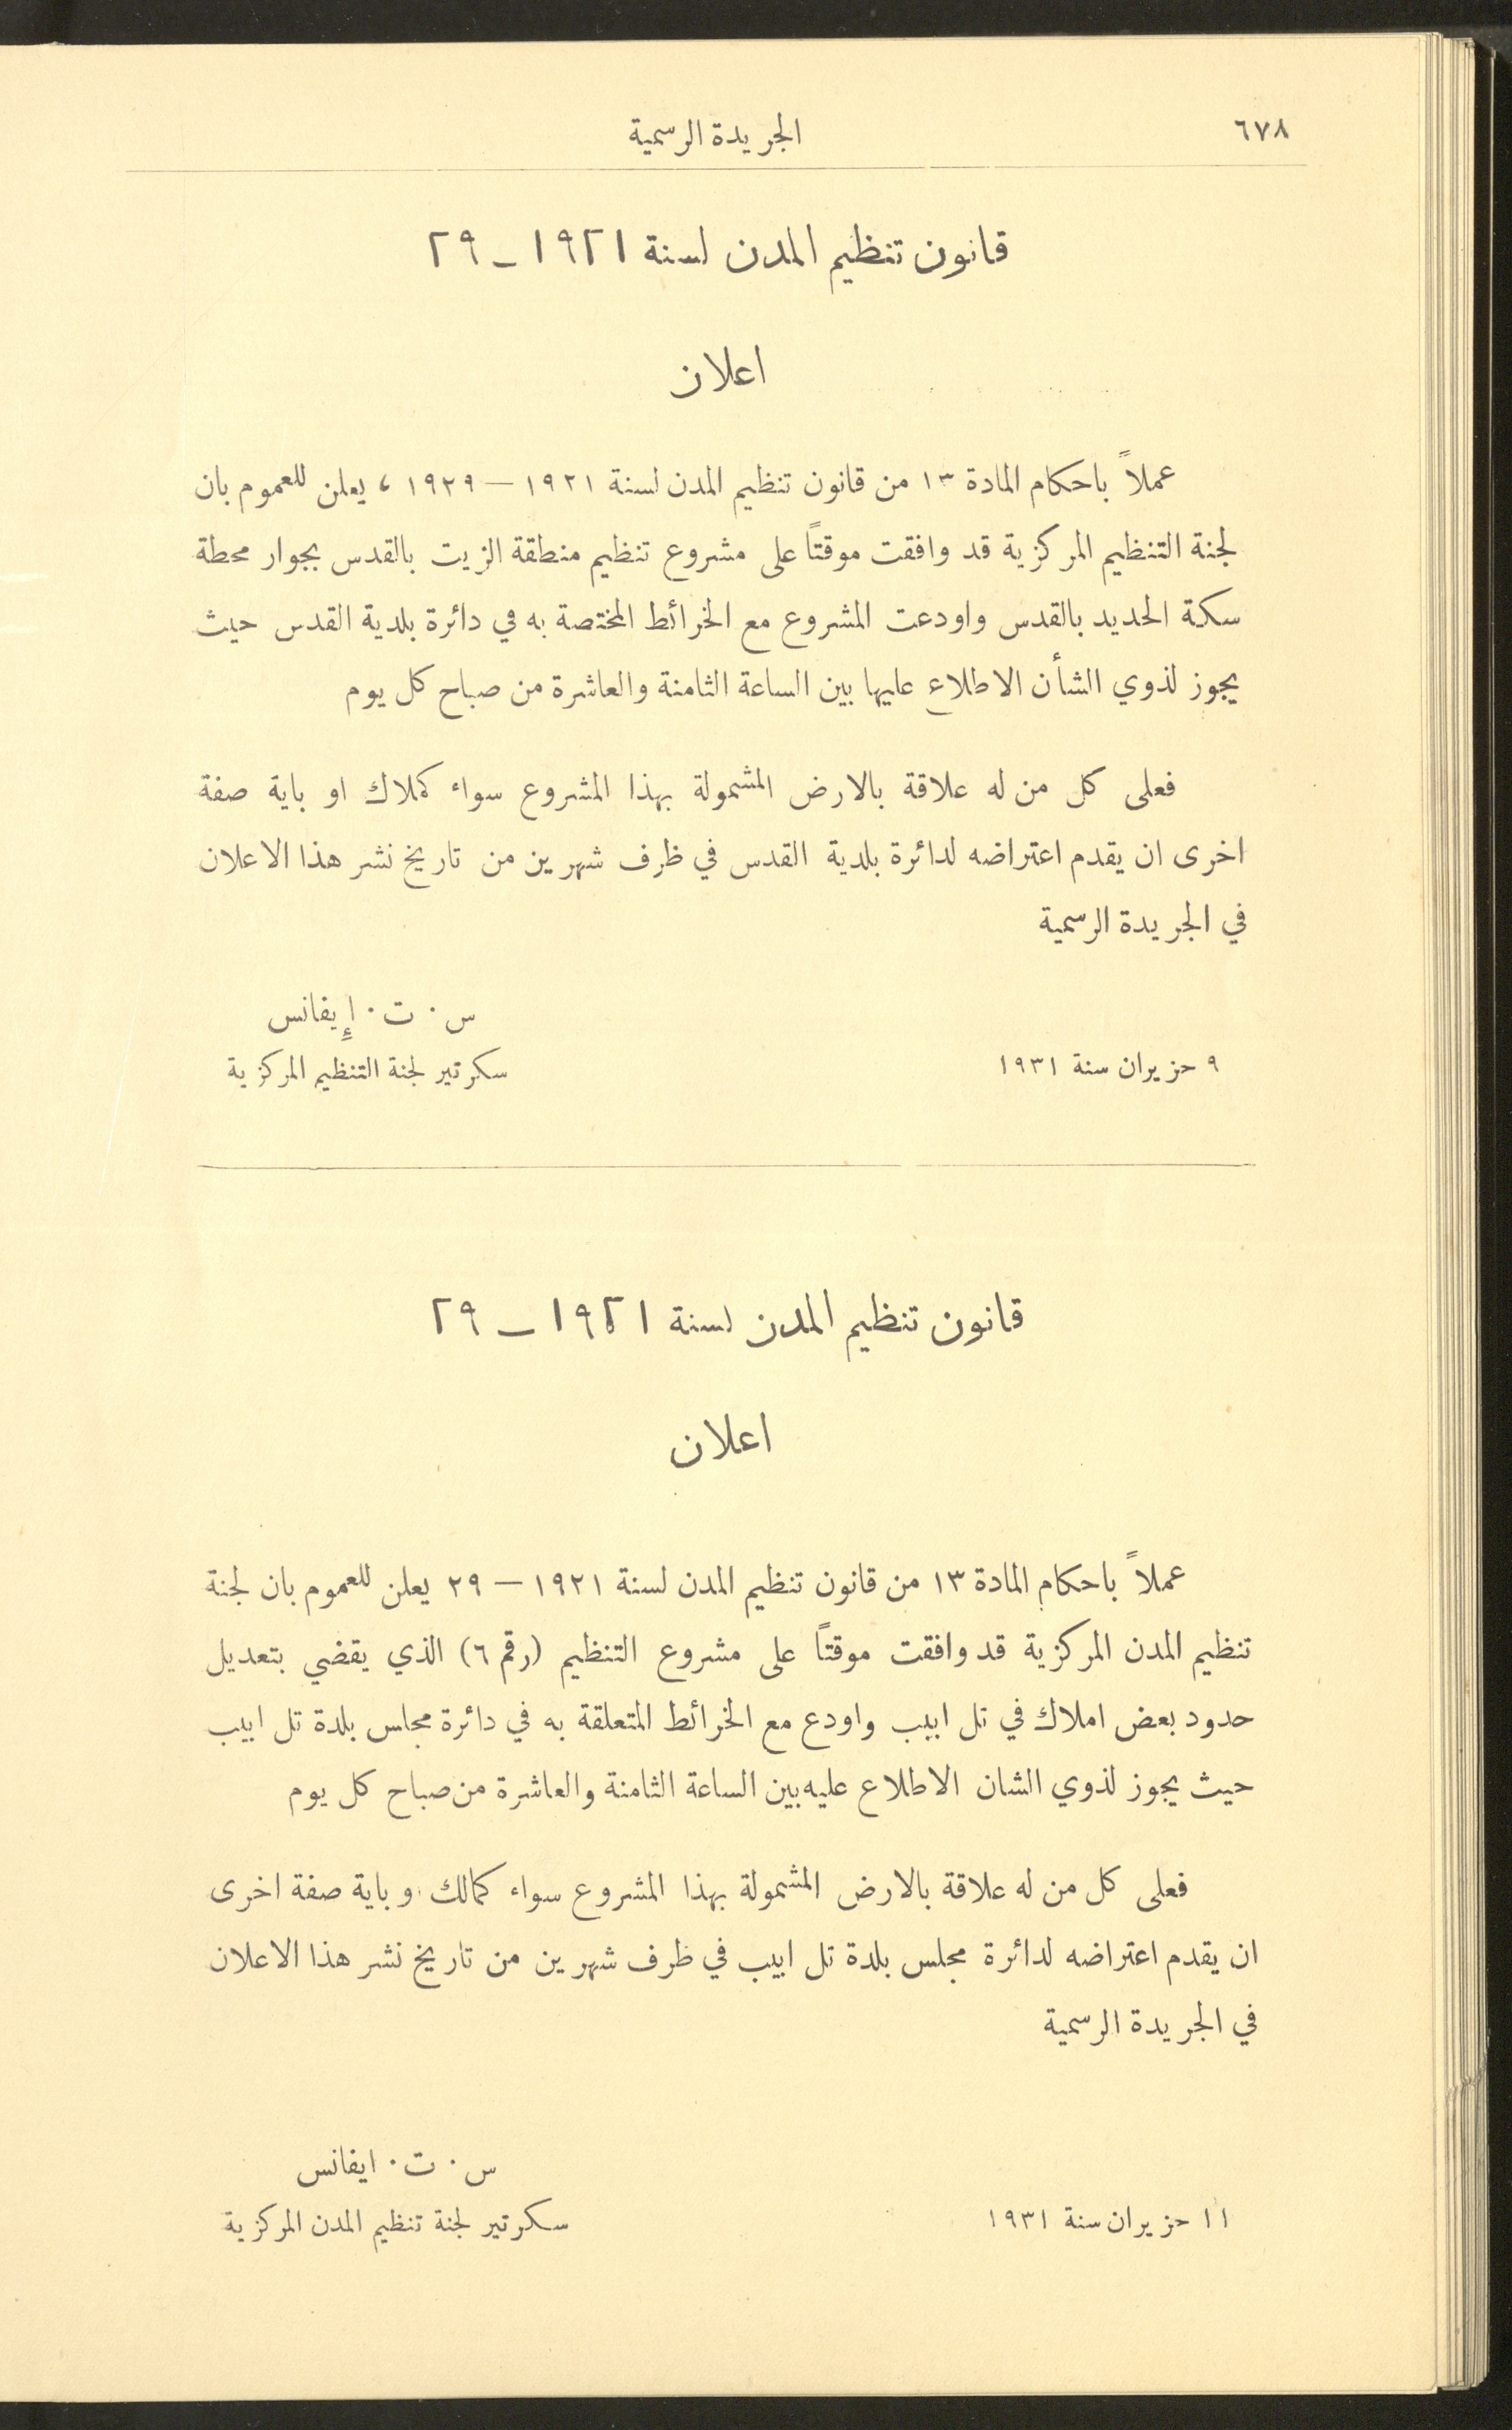 ٦٧٨
الجريدة الرسمية
قانون تنظيم المدن لسنة ١٩٢١ - ٢٩
اعلان
عملاً باحكام المادة ١٣ من قانون تنظيم المدن لسنة ١٩٢١ — ١٩٢٩ ، يعلن للعموم بان
لجنة التنظيم المركزية قد وافقت موقتاً على مشروع تنظيم منطقة الزيت بالقدس بجوار محطة
سكة الحديد بالقدس واودعت المشروع مع الخرائط المختصة به في دائرة بلدية القدس حيث
يجوز لذوي الشأن الاطلاع عليها بين الساعة الثامنة والعاشرة من صباح كل يوم
فعلى كل من له علاقة بالارض المشمولة بهذا المشروع سواء كملاك او باية صفة
اخرى ان يقدم اعتراضه لدائرة بلدية القدس في ظرف شهرين من تاريخ نشر هذا الاعلان
في الجريدة الرسمية
س . ت . إيفانس
٩ حزيران سنة ١٩٣١ سكرتير لجنة التنظيم المركزية
قانون تنظيم المدن لسنة ١٩٢١ - ٢٩
اعلان
عملاً باحكام المادة ١٣ من قانون تنظيم المدن لسنة ١٩٢١ — ٢٩ يعلن للعموم بان لجنة
تنظيم المدن المركزية قد وافقت موقتاً على مشروع التنظيم (رقم ٦) الذي يقضي بتعديل
حدود بعض املاك في تل ابيب واودع مع الخرائط المتعلقة به في دائرة مجلس بلدة تل ابيب
حيث يجوز لذوي الشان الاطلاع عليه بين الساعة الثامنة والعاشرة من صباح كل يوم
فعلى كل من له علاقة بالارض المشمولة بهذا المشروع سواء كمالك او باية صفة اخرى
ان يقدم اعتراضه لدائرة مجلس بلدة تل ابيب في ظرف شهرين من تاريخ نشر هذا الاعلان
في الجريدة الرسمية
س . ت . ايفانس
١١ حزيران سنة ١٩٣١ سكرتير لجنة تنظيم المدن المركزية